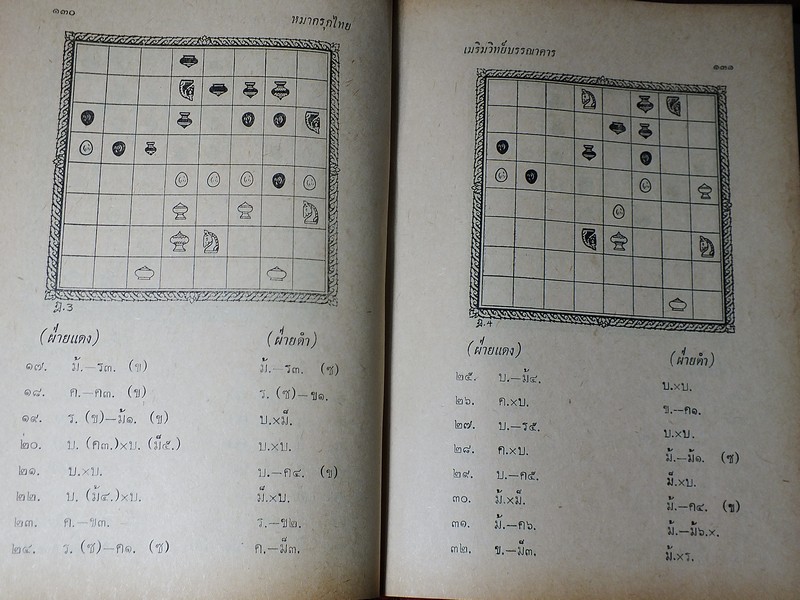 ๑๓๐
หมากรุกไทย
ฎี.๓
(ฝ่ายแดง) (ฝ่ายดำ)
๑๗. ม้.–ร๓. (ข) ม้.–ร๓. (ซ)
๑๘. ค.–ค๓. (ข) ร. (ซ)–ข๑.
๑๙. ร. (ข)–ม้๑. (ข) บ.×ม็.
๒๐. บ. (ค๓.)×บ. (ม็๕.) บ.×บ.
๒๑. บ.×บ. บ.–ค๔. (ข)
๒๒. บ. (ม้๔.)×บ. ม็.×บ.
๒๓. ค.–ข๓. ร.–ข๒.
๒๔. ร. (ซ)–ค๑. (ซ) ค.–ม็๓.
เมริมวิทย์บรรณาคาร
๑๓๑
(ฝ่ายแดง) (ฝ่ายดำ)
๒๕. บ.–ม้๔. บ.×บ.
๒๖. ค.×บ. ข.–ค๑.
๒๗. บ.–ร๕. บ.×บ.
๒๘. ค.×บ. ม้.–ม้๑. (ซ)
๒๙. บ.–ค๕. ม็.×บ.
๓๐. ม้.×ม็. ม้.–ค๔. (ข)
๓๑. ม้.–ค๖. ม้.–ม้๖.×.
๓๒. ข.–ม็๓. ม้.×ร.